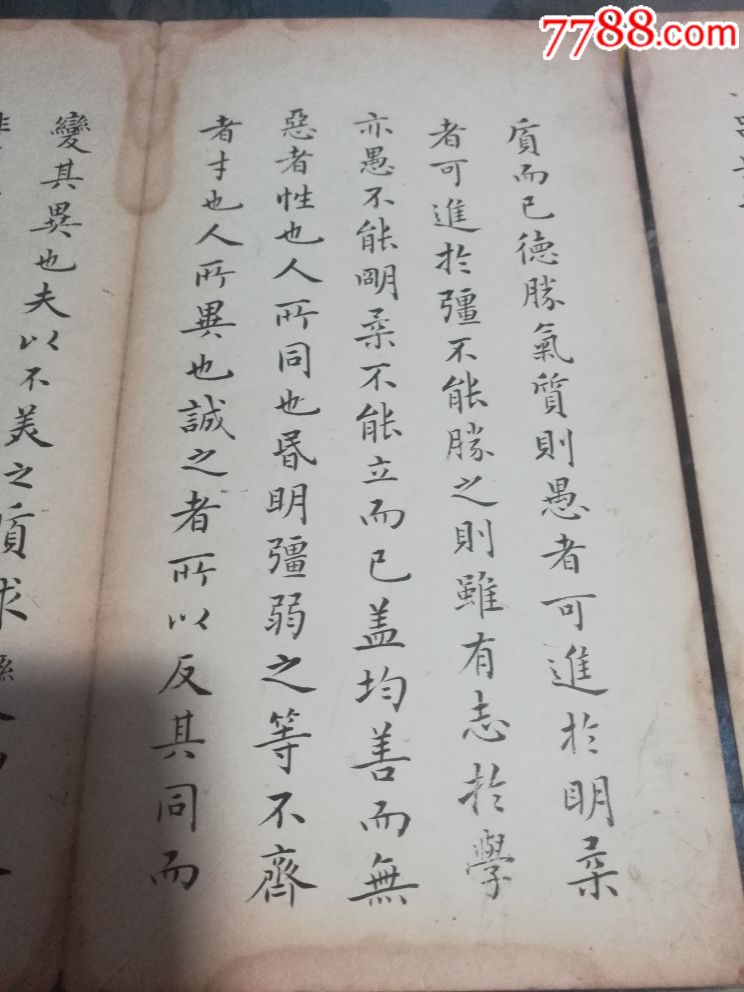 7788.com
質而已德勝氣質則愚者可進於明柔
者可進於彊不能勝之則雖有志於學
亦愚不能明柔不能立而已盖均善而無
惡者性也人所同也昬明彊弱之等不齊
者才也人所異也誠之者所以反其同而
變其異也夫以不美之質求